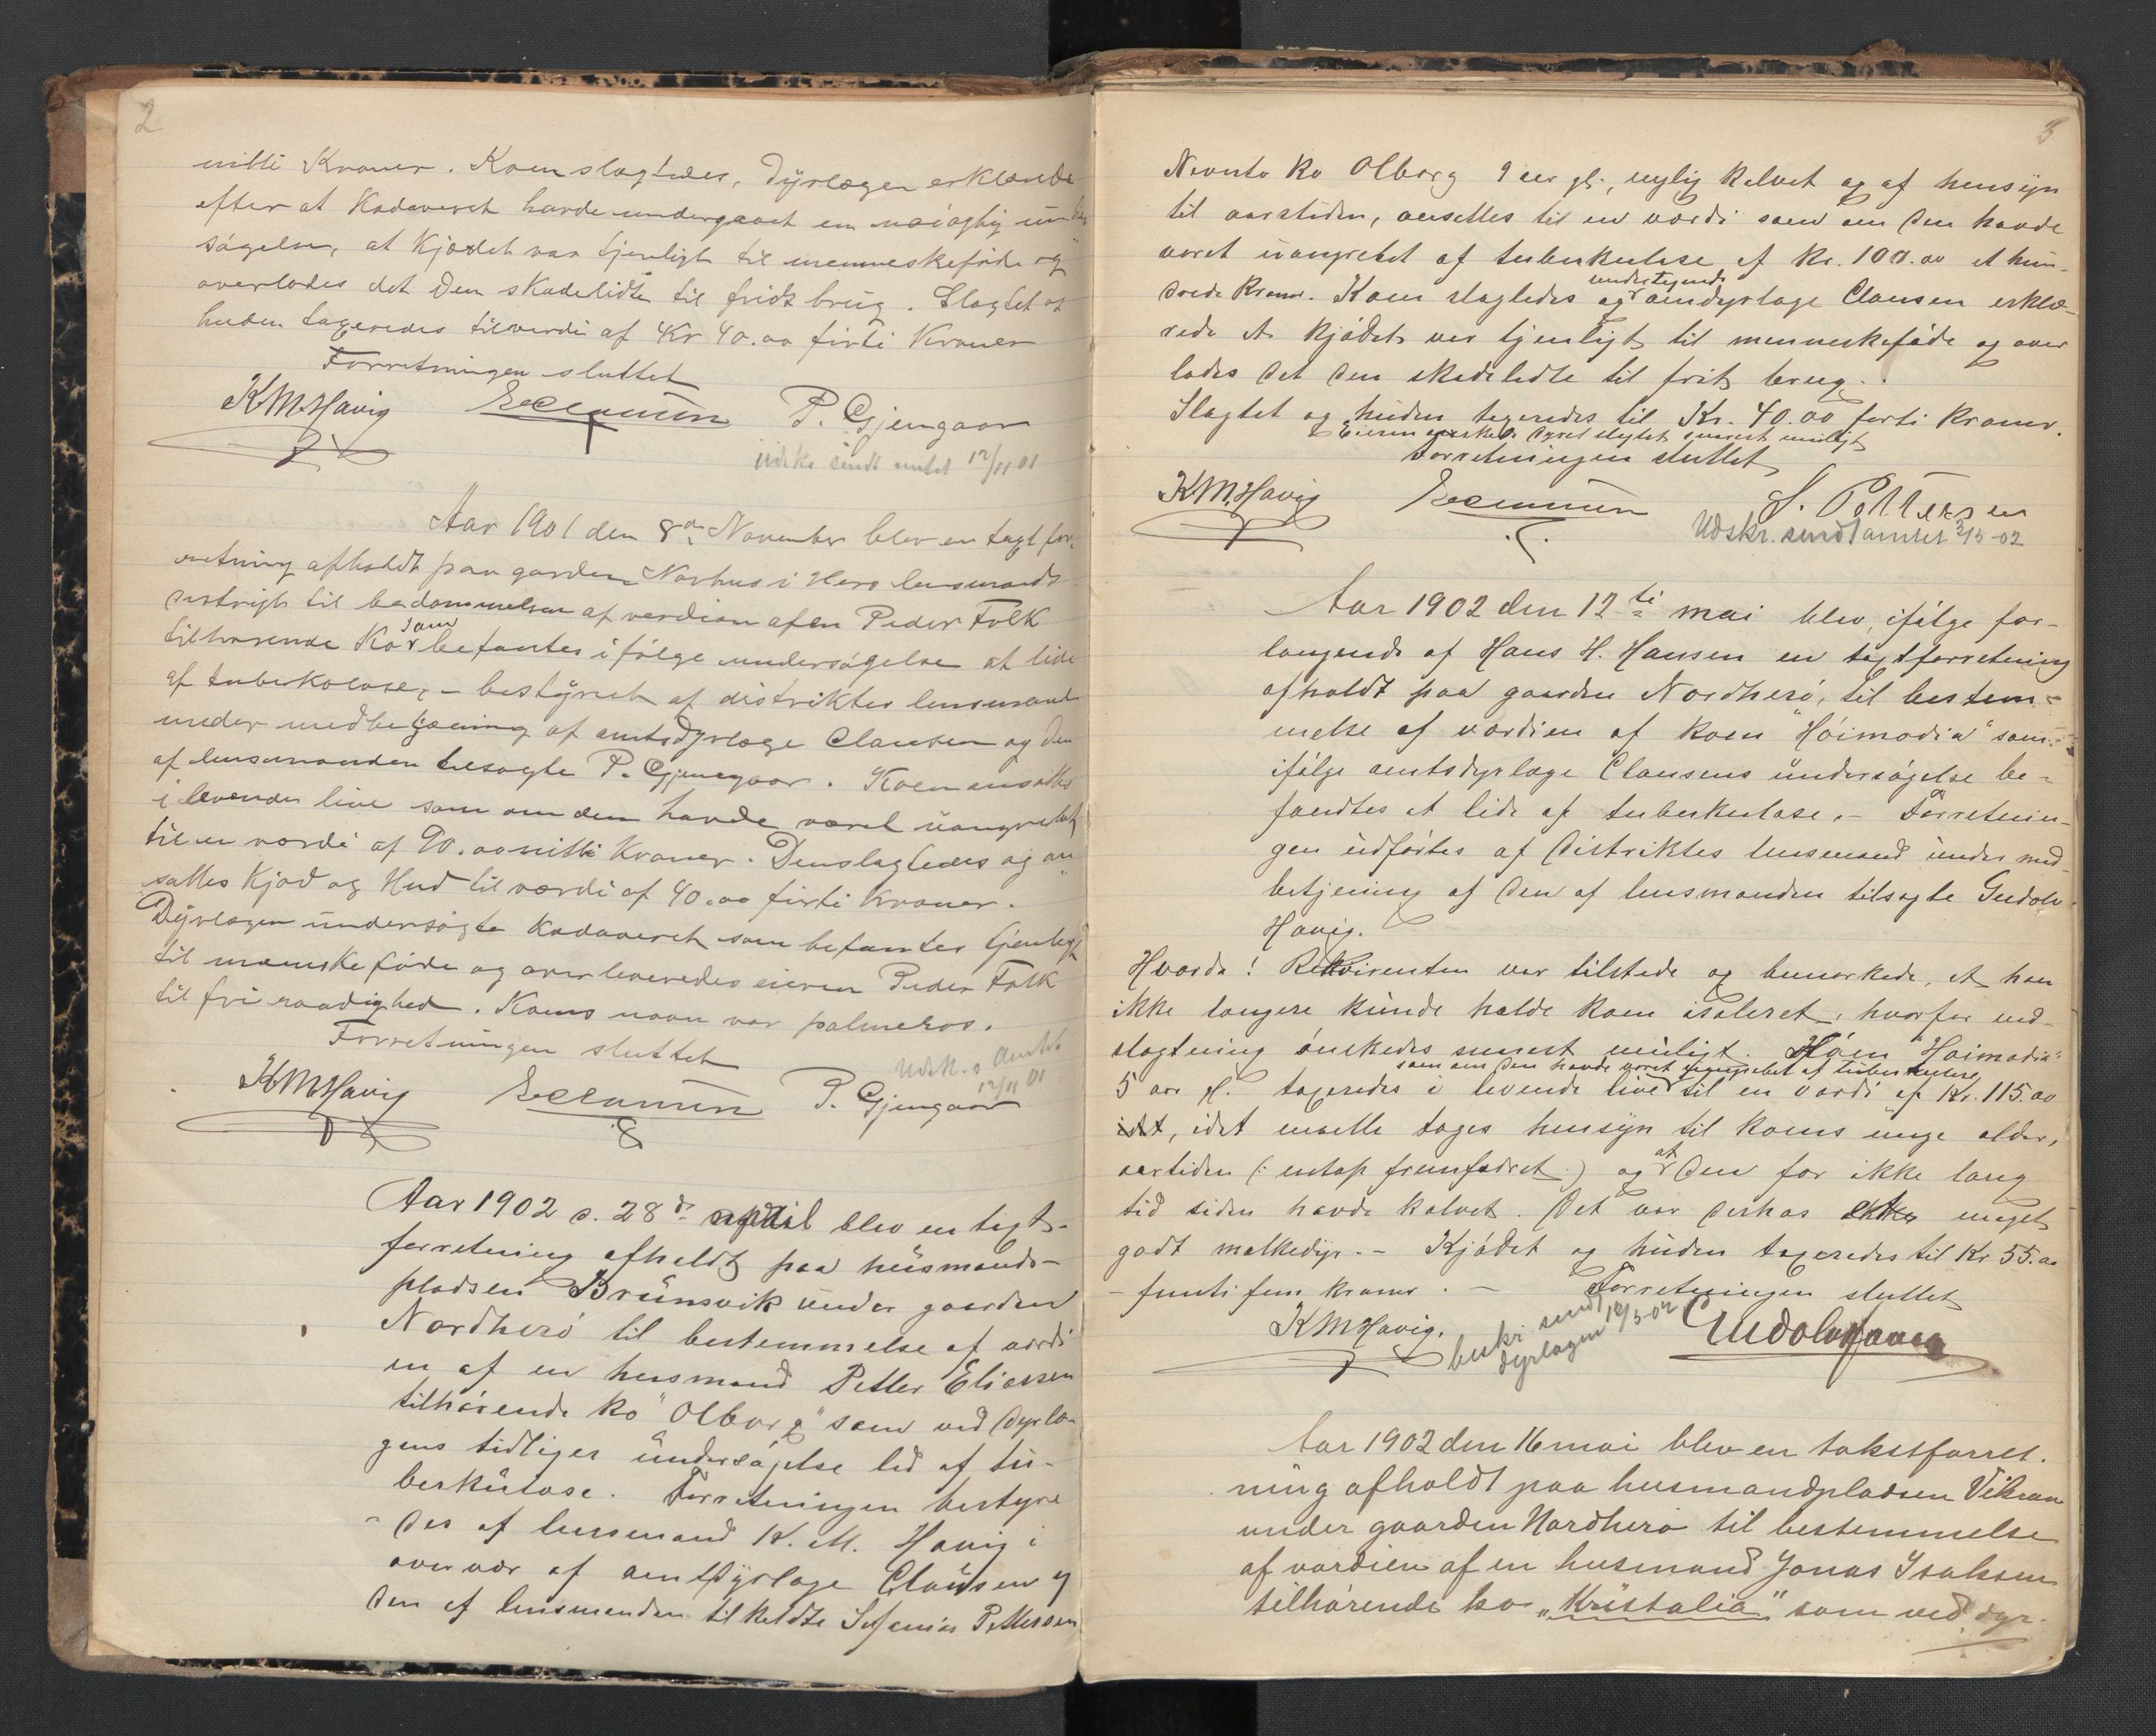 2
nitti Kroner. Koen slagtedes, Dyrlægen erklærede
efter at Kadaveret havde undergaaet en nøiagtig un
søgelse, at Kjødet var tjenligt til menneskeføde og
overlodes det Den skadelidte til fridt brug. Slagtet og
huden taxeredes til verdi af Kr 40.00 firti Kroner
Forretningen sluttet
KMHavig P. Gjengaar
Udskr. sendt amtet 12/11 01
Aar 1901 den 8de November blev en taxt for-
retning afholdt paa garden Nørhus i Herø lensmands
distrigt til bedømmelsen af verdien af en Peder Falk
tilhørende Ko som befantes i følge undersøgelse at lide
af tuberkolose, - bestyret af distriktes lensmand
under medbetjæning af amtsdyrlæge Clausen og den
af lensmanden tilsagte P. Gjengaar. Koen ansattes
i levende live som om den havde været uangrebet
til en værdi af 90.00 nitti Kroner. Den slagtedes og an
sattes Kjød og Hud til værdi af 40.00 firti Kroner.
Dyrlægen undersøgte Kadaveret som befantes tjenligt
til menneskeføde og overleveredes eieren Peder Falk
til fri raadighed. Koens navn var palmeros.
Forretningen sluttet
Udsk. s. Amtet
12/11 01
KMHavig P. Gjengaar
Aar 1902 d. 28de april blev en taxt-
forretning afholdt paa husmands-
pladsen Brünsvik under gaarden
Nordherø til bestemmelse af værdi
en af en husmand Petter Eliassen
tilhørende ko "Olborg" som ved dyrlæ-
gens tidliger undersøgelse led af tu-
berkulose. Forretningen bestyre
des af lensmand K. M. Havig i
overvær af amtdyrlæge Clausen og
den af lensmanden tilkaldte Pettersen
3
Nevnte ko Olborg 9 aar gl., nylig kalvet og af hensyn
til aarstiden, ansettes til en værdi som om den havde
været uangrebet af tuberkulose af Kr. 100.00 et hun-
drede Kroner. Koen slagtedes og undertegnede amdyrlæge Clausen erklæ-
rede at kjødet var tjenligt til menneskeføde og over
lodes det den skadelidte til frit brug.
Slagtet og huden taxeredes til Kr. 40.00 førti kroner.
Eieren ønskede dyret slagtet snarest muligt
Forretningen sluttet
KM.Havig S. Pettersen
Udskr. sendt amtet 2/5-02
Aar 1902 den 12te mai blev, ifølge for-
langende af Hans H. Hansen en taxtforretning
afholdt paa gaarden Nordherø, til bestem-
melse af værdien af koen "Høimodia" som
ifølge amtsdyrlæge Clausens undersøgelse be-
fandtes at lide af tuberkulose. - Forretnin-
gen udførtes af Distriktes lensmand under med
betjening af den af lensmanden tilsagte Gudolv
Havig.
Hvorda! Rekvirenten var tilstede og bemærkede, at han
ikke længere kunde holde koen isoleret, hvorfor ned-
slagtning ønskedes snarest muligt. Køen "Høimodia"
som om den havde været uangrebet af tuberkulose
5 aar gl. taxeredes i levende live til en værdi af Kr. 115.00
idet, idet maatte tages hensyn til koens unge alder,
aartiden (: entop fremfødret :) og at den for ikke lang
tid siden havde kalvet. Det var derhos meget
godt melkedyr. - Kjødet og huden taxeredes til Kr 55.00
- femti fem kroner. - Forretningen sluttet
KMHavig. Gudolv Havig
beskr. sendt
dyrlægen 12/5-02
Aar 1902 den 16 mai blev en takstforret.
ning afholdt paa husmandpladsen Vikran
under gaarden Nordherø til bestemmelse
af værdien af en husmand Jonas Isaksen
tilhørende ko "Kristalia" som ved dyr-